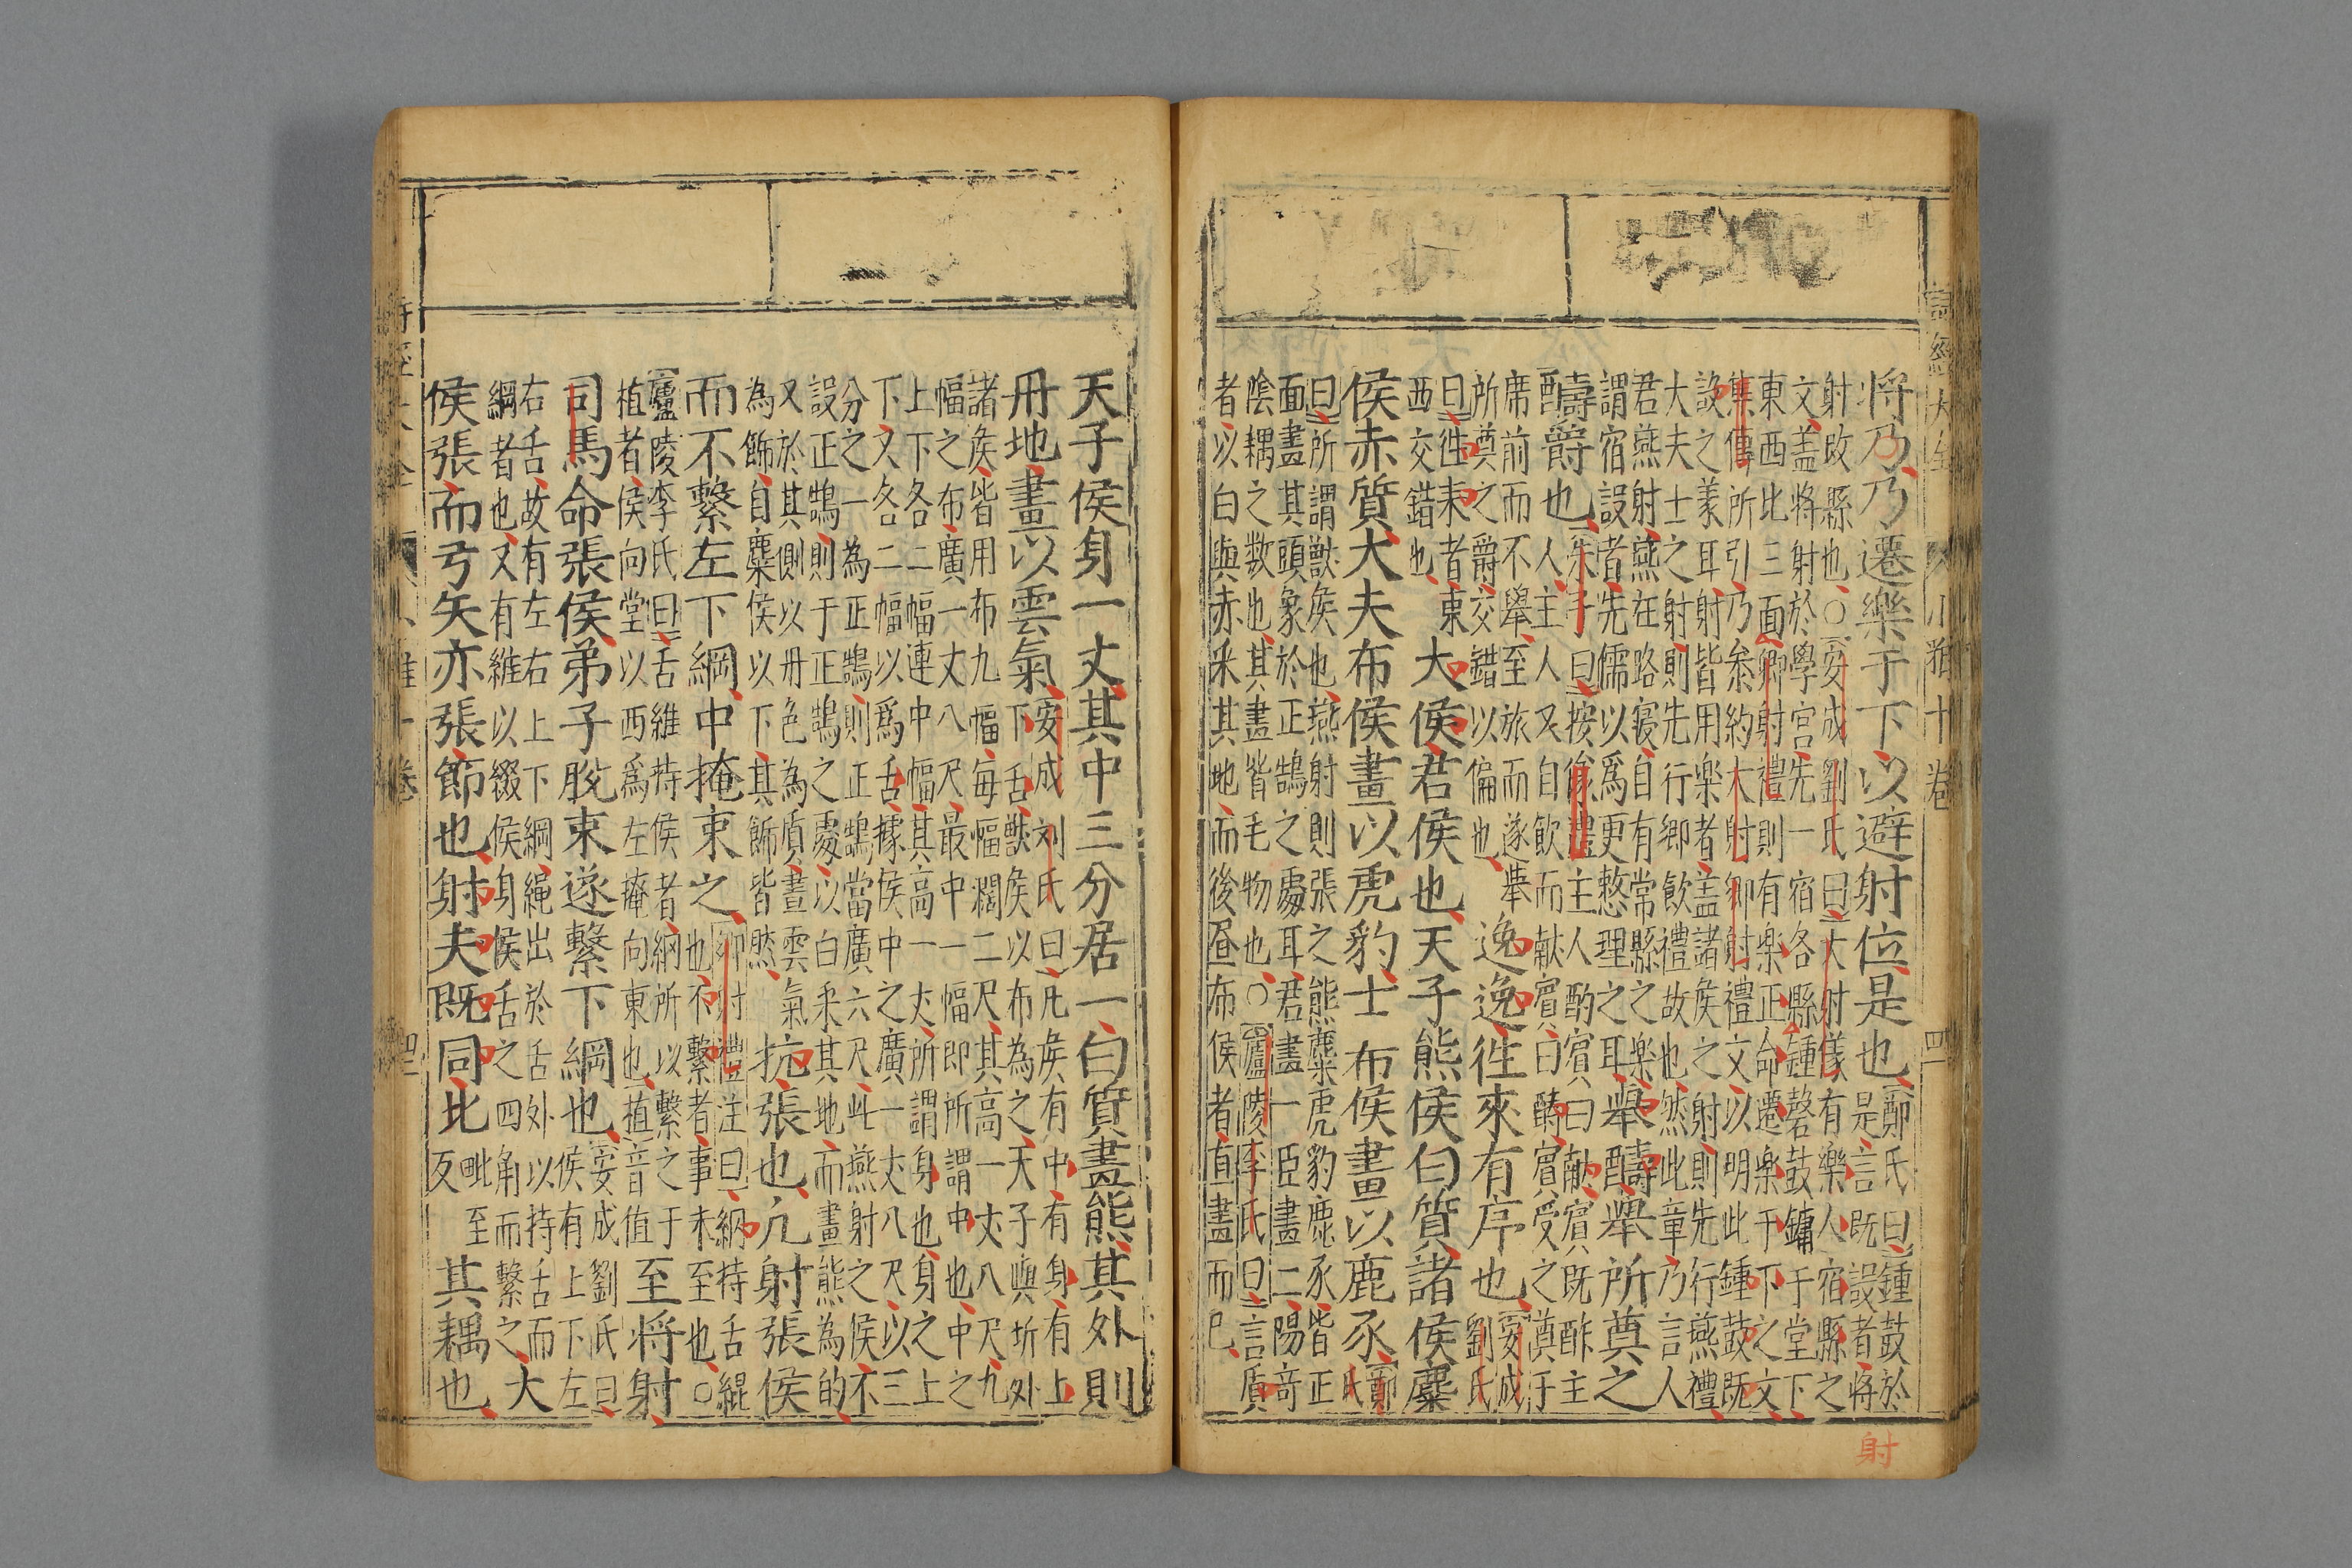 詩經大全 小雅十卷 四
將乃乃遷樂于下以避射位是也
鄭氏曰鍾鼓於
是言既設者將
射改縣也○安成劉氏曰大射儀有樂人宿縣之
文盖將射於學宮先一宿各縣鍾磬鼓鏞于堂下
東西北三面鄉射禮則有楽正命遷楽于下之文
集傳所引乃叅約大射鄉射禮文以明此鍾鼓既
設之義耳射皆用楽者盖諸侯之射則先行燕禮
大夫士之射則先行鄉飲禮故也然此章乃言人
君燕射燕在路寢自有常縣之楽
謂宿設者先儒以為更整理之耳
舉醻舉所奠之
醻爵也
朱子曰按儀禮主人酌賓曰献賓既酢主
人主人又自飲而献賓曰酧賓受之奠于
席前而不舉至旅而遂舉
所奠之爵交錯以偏也
逸逸徃來有序也
安成
劉氏
曰徃来者東
西交錯也
大侯君侯也天子熊侯白質諸侯麋
侯赤質大夫布侯畫以虎豹士布侯畫以鹿豕
鄭
氏
曰所謂獸侯也燕射則張之熊麋虎豹鹿豕皆正
面畫其頭象於正鵠之處耳君畫一臣畫二陽竒
陰耦之数也其畫皆毛物也○廬陵李氏曰言質
者以白與赤采其地而後昼布侯者直畫而已
射
天子侯身一丈其中三分居一白質畫熊其外則
丹地畫以雲氣
安成刘氏曰凡侯有中有身有上
下舌獸侯以布為之天子與圻外
諸侯皆用布九幅每幅濶二尺其高一丈八尺九
幅之布廣一丈八尺最中一幅即所謂中也中之
上下各二幅連中幅其高一丈所謂身也身之上
下又各二幅以爲舌據侯中之廣一丈八尺以三
分之一為正鵠則正鵠當廣六尺此燕射之侯不
設正鵠則于正鵠之處以白采其地而畫熊為的
又於其側以丹色為質畫雲氣
為飾自麋侯以下其飾皆然
抗張也凢射張侯
而不繫左下綱中掩束之
鄉射禮注曰綱持舌綎
也不繫者事未至也○
廬陵李氏曰舌維持侯者綱所以繫之于
植者侯向堂以西爲左掩向東也植音值
至将射
司馬命張侯弟子脫束遂繫下綱也
安成劉氏曰
侯有上下左
右舌故有左右上下綱繩出於舌外以持舌而
綱者也又有維以綴侯身侯舌之四角而繫之
大
侯張而弓矢亦張節也射夫既同比
毗至
反
其耦也